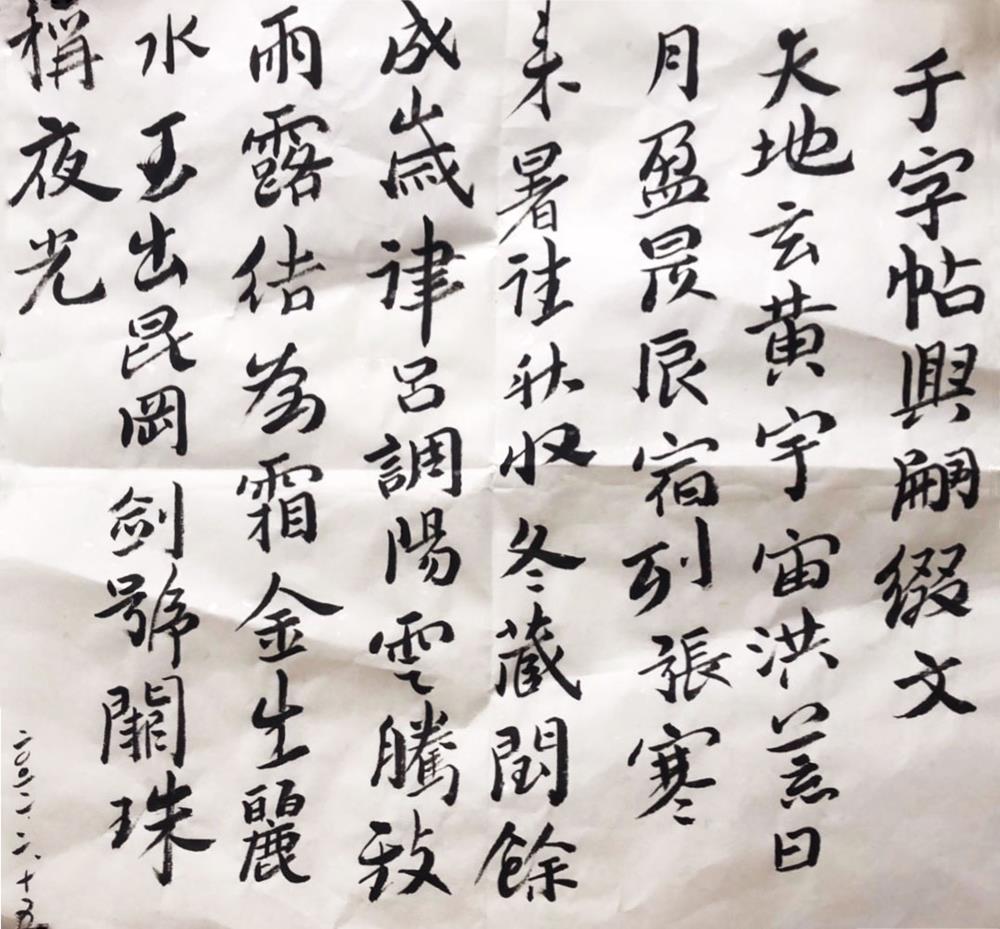 千字帖興嗣綴文
天地玄黃宇宙洪荒日
月盈昃辰宿列張寒
来暑往秋收冬藏閏餘
成歲律呂調陽雲騰致
雨露結為霜金生麗
水玉出崑岡劍號闕珠
稱夜光
二〇二一.二.十五